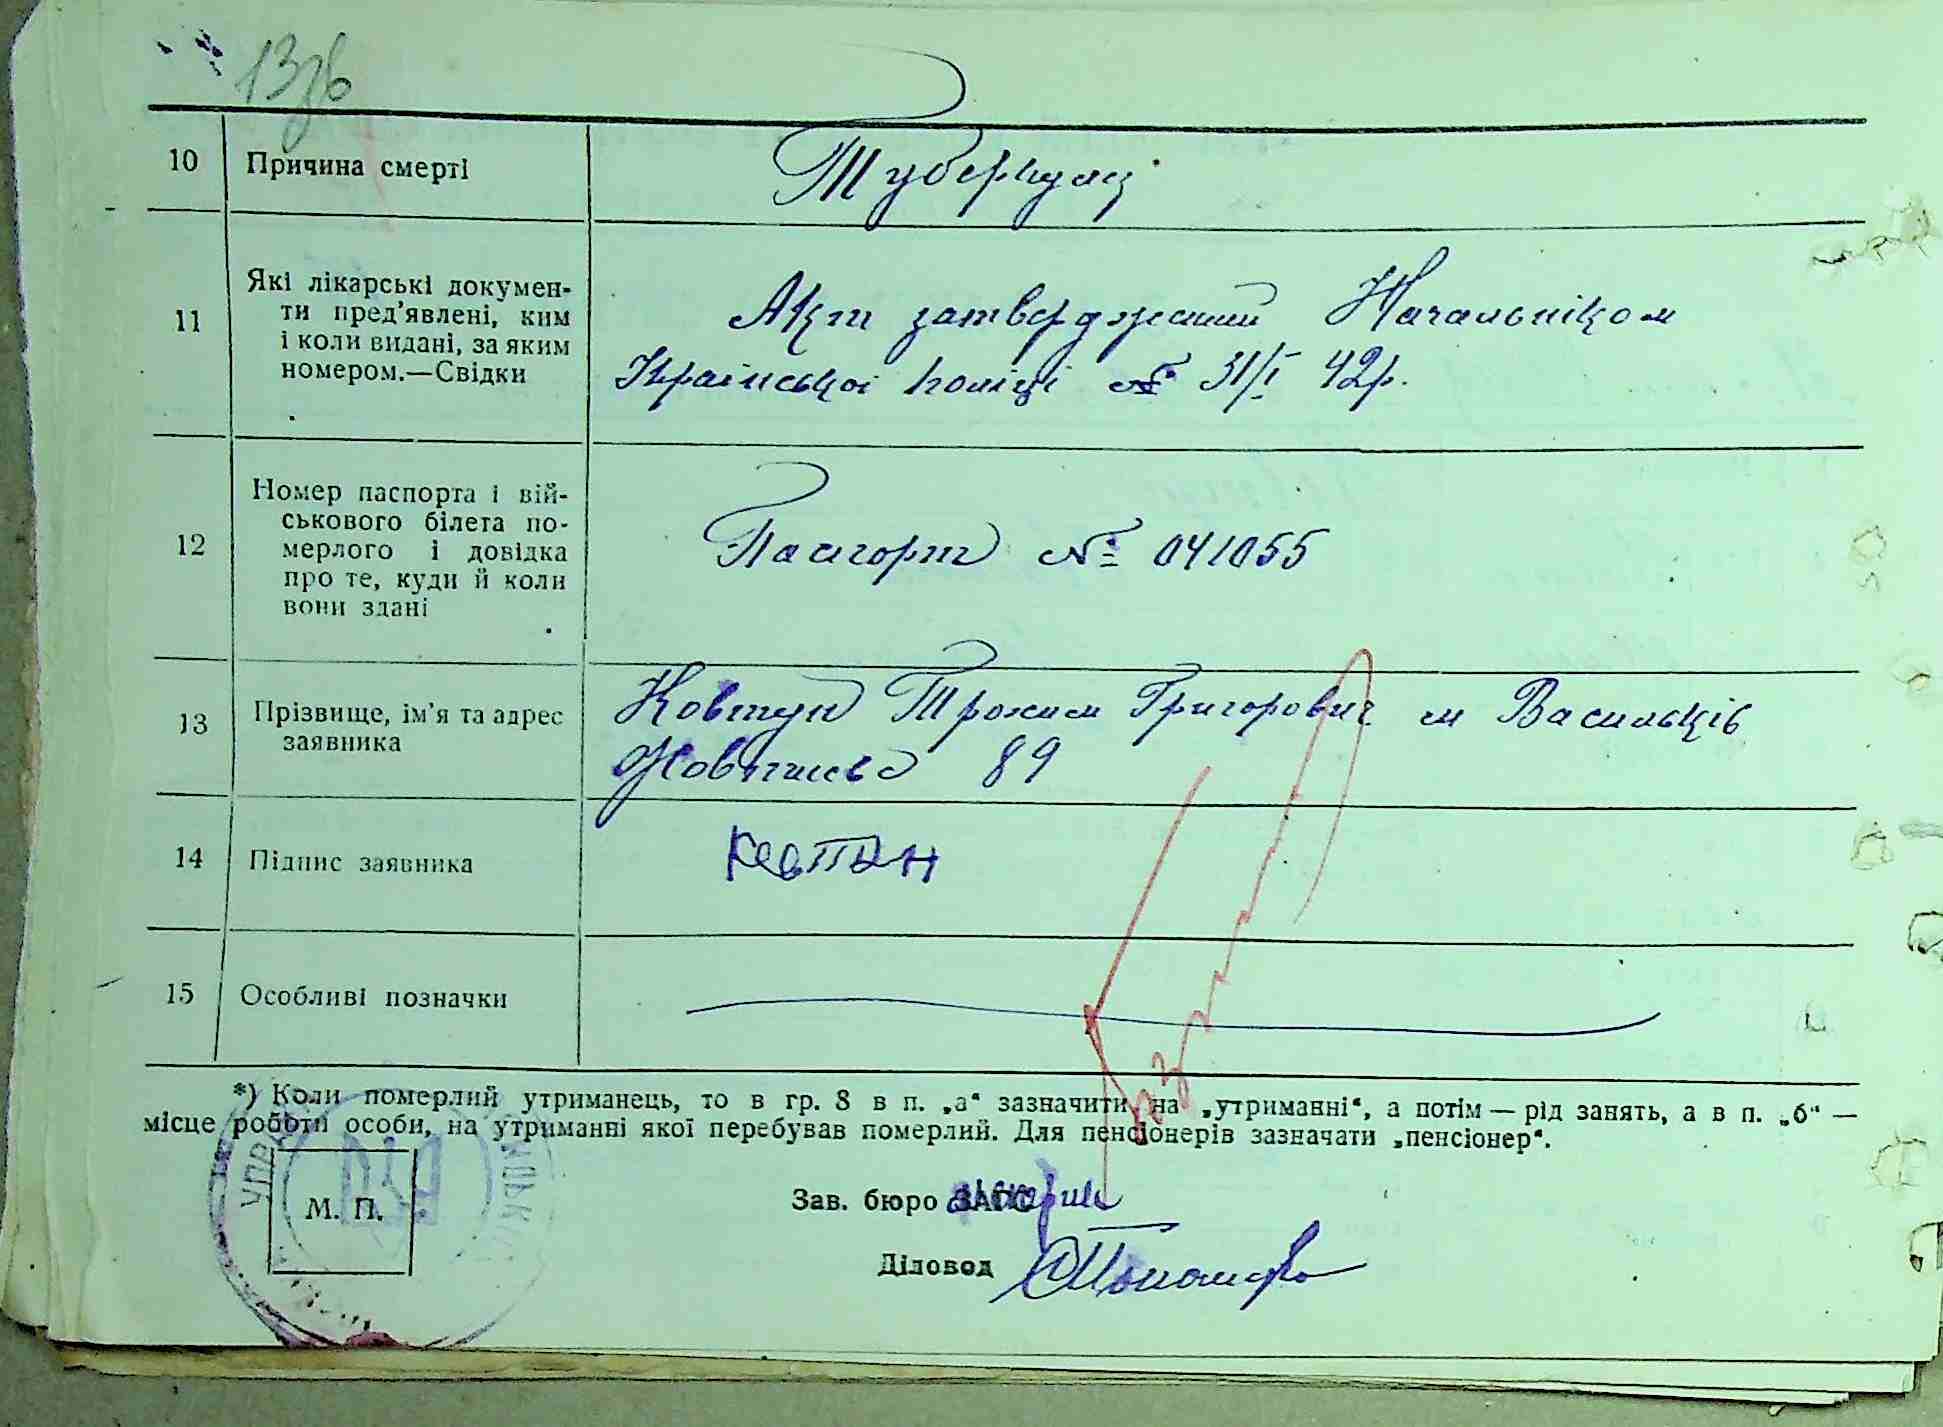 13зв
10 Причина смерті Туберкульоз
11 Які лікарські докумен-
ти пред'явлені, ким
і коли видані, за яким
номером.—Свідки
Акт затверджений Начальніком
Української поліції № 31/I 42р.
12 Номер паспорта і вій-
ськового білета по-
мерлого і довідка
про те, куди й коли
вони здані
Паспорт № 041055
13 Прізвище, ім'я та адрес
заявника
Ковтун Трохим Григорович м Васильків
89
14 Підпис заявника Ковтун
15 Особливі позначки
*) Коли померлий утриманець, то в гр. 8 в п. „а“ зазначити на „утриманні“, а потім — рід занять, а в п. „б“ —
місце роботи особи, на утриманні якої перебував померлий. Для пенсіонерів зазначати „пенсіонер“.
М. П.
Зав. бюро ЗАГС
Діловод